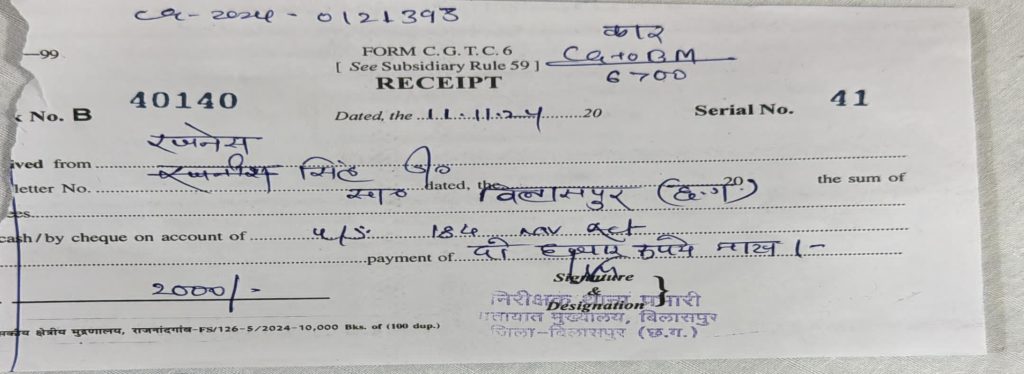 CG-2024-0121393
-99
FORM C. G. T. C. 6
कार
[ See Subsidiary Rule 59 ]
CG10BM
6700
RECEIPT
No. B 40140 Dated, the 11.11.24 20 Serial No. 41
रजनेस
ived from सिंह
letter No. dated, the 20 the sum of
बिलासपुर (छ.ग)
cash / by cheque on account of u/s. 184 MV Act
payment of दो हजार रुपये मात्र /-
Signature
&
Designation
2000/-
निरीक्षक थाना प्रभारी
यातायात मुख्यालय, बिलासपुर
जिला-बिलासपुर (छ.ग.)
क्षेत्रीय मुद्रणालय, राजनांदगांव-FS/126-5/2024-10,000 Bks. of (100 dup.)